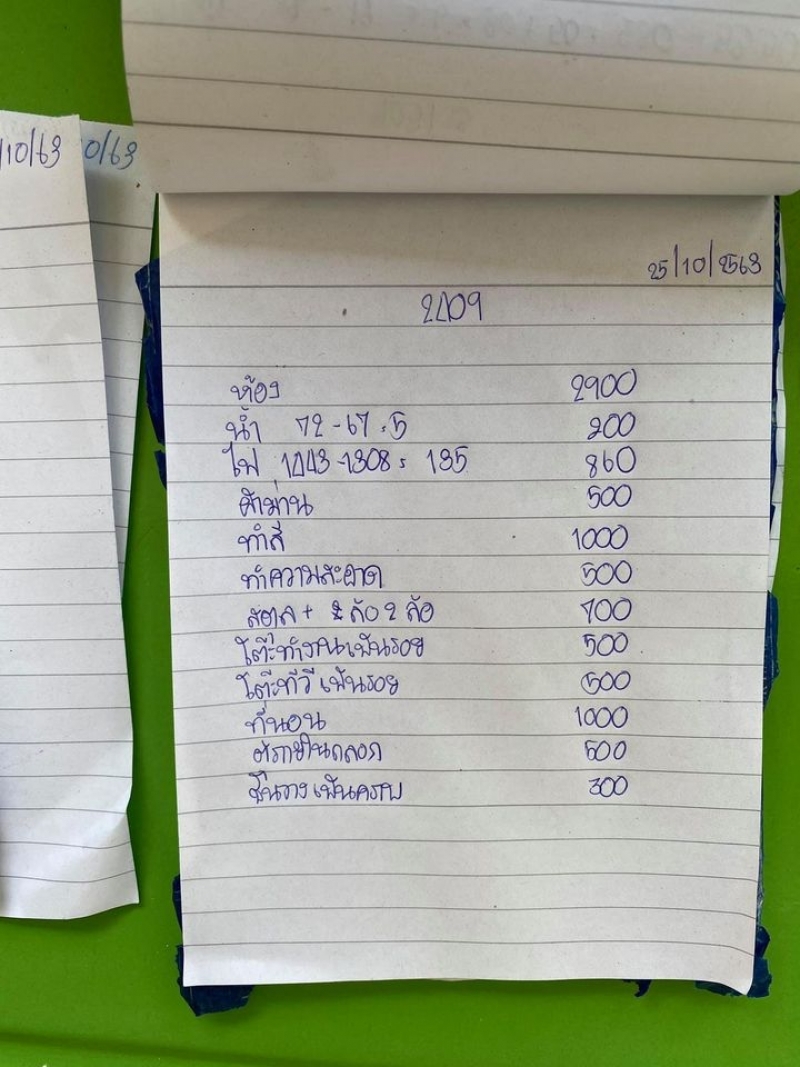 /10/63
0/63
25/10/2563
2409
ห้อง 2900
น้ำ 72-67=5 200
ไฟ 1443-1308= 135 860
ผ้าม่าน 500
ทำสี 1000
ทำความสะอาด 500
สตูล + 2 ล้อ 700
โต๊ะทำงานเป็นรอย 500
โต๊ะทีวี เป็นรอย 500
ที่นอน 1000
500
ชั้นวางเป็นคราบ 300